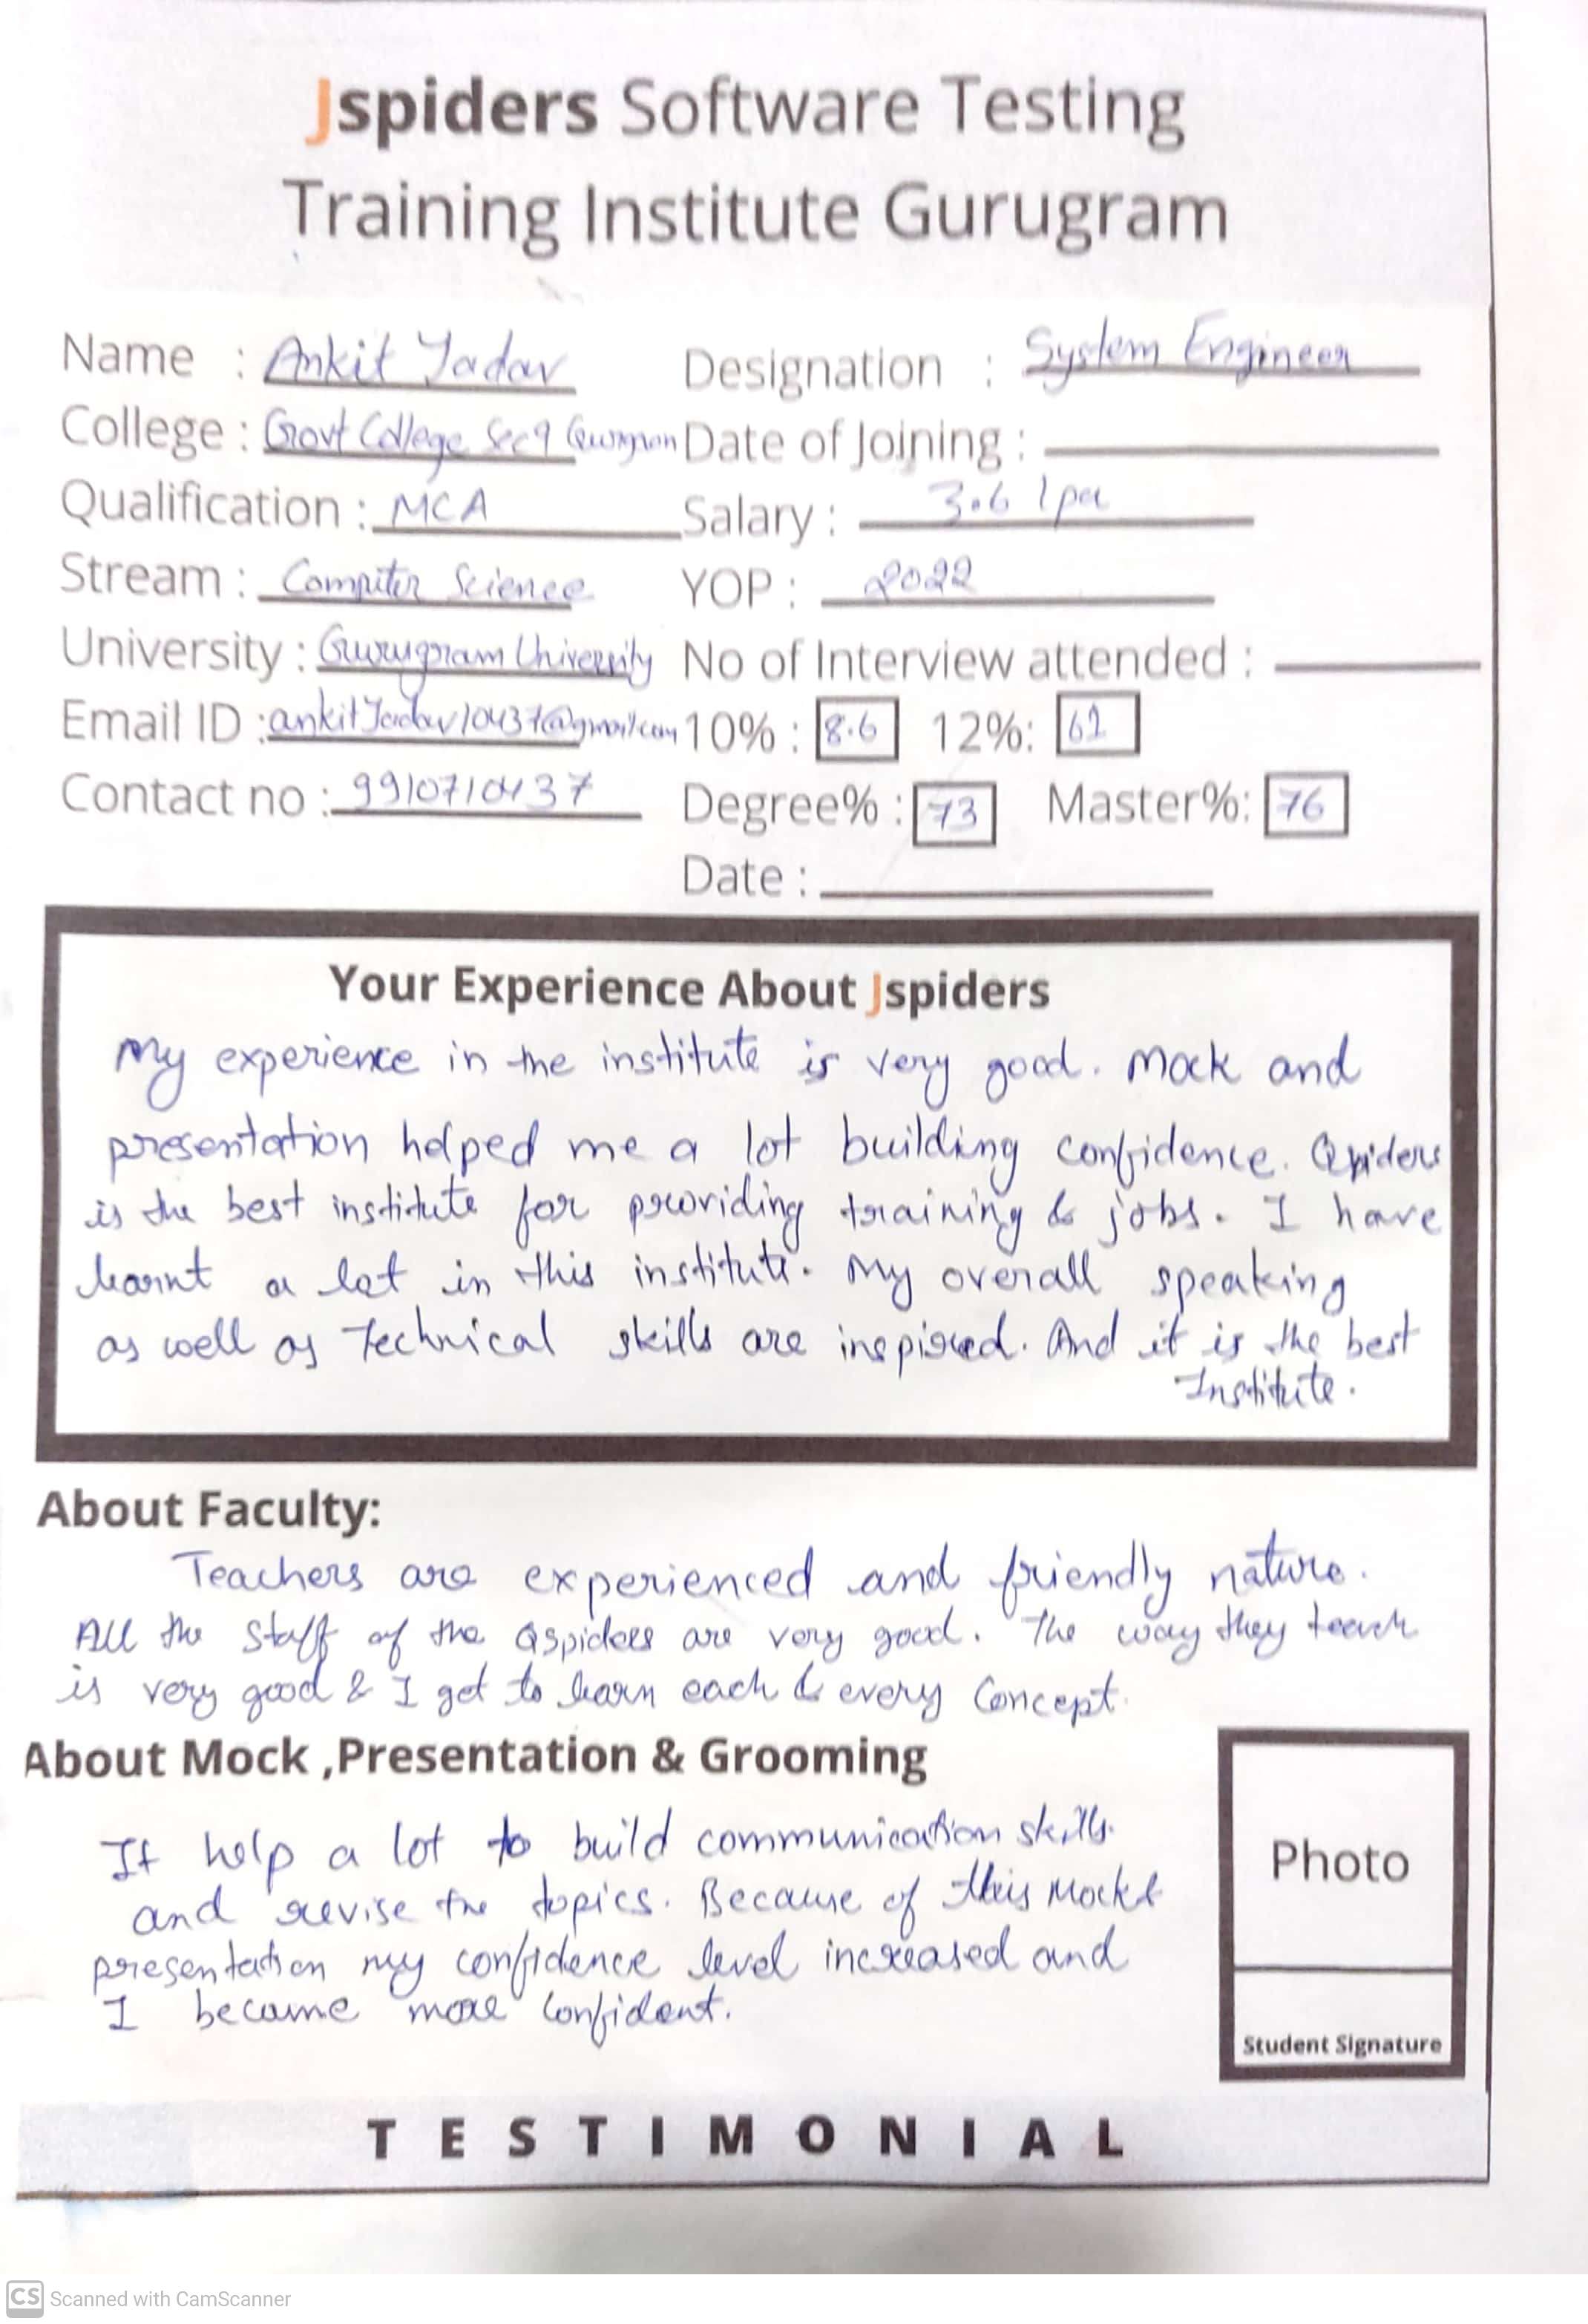 Jspiders Software Testing
Training Institute Gurugram
Name : Ankit Yadav
Designation : System Engineer
College : Govt College Sec 9 Gurgaon
Date of Joining :
Qualification : MCA
Salary : 3.6 lpa
Stream : Computer Science
YOP : 2022
University : Gurugram University
No of Interview attended :
Email ID : ankityadav10437@gmail.com
10% : 8.6 12%: 62
Contact no : 9910710437
Degree% : 73 Master%: 76
Date :
Your Experience About Jspiders
My experience in the institute is very good. Mock and
presentation helped me a lot building confidence. Qspiders
is the best institute for providing training & jobs. I have
learnt a lot in this institute. My overall speaking
as well as Technical skills are inspired. And it is the best
Institute.
About Faculty:
Teachers are experienced and friendly nature.
All the staff of the Qspiders are very good. The way they teach
is very good & I get to learn each & every Concept.
About Mock ,Presentation & Grooming
It help a lot to build communication skills.
and revise the topics. Because of this Mock &
presentation my confidence level increased and
I became more confident.
Photo
Student Signature
TESTIMONIAL
CS Scanned with CamScanner